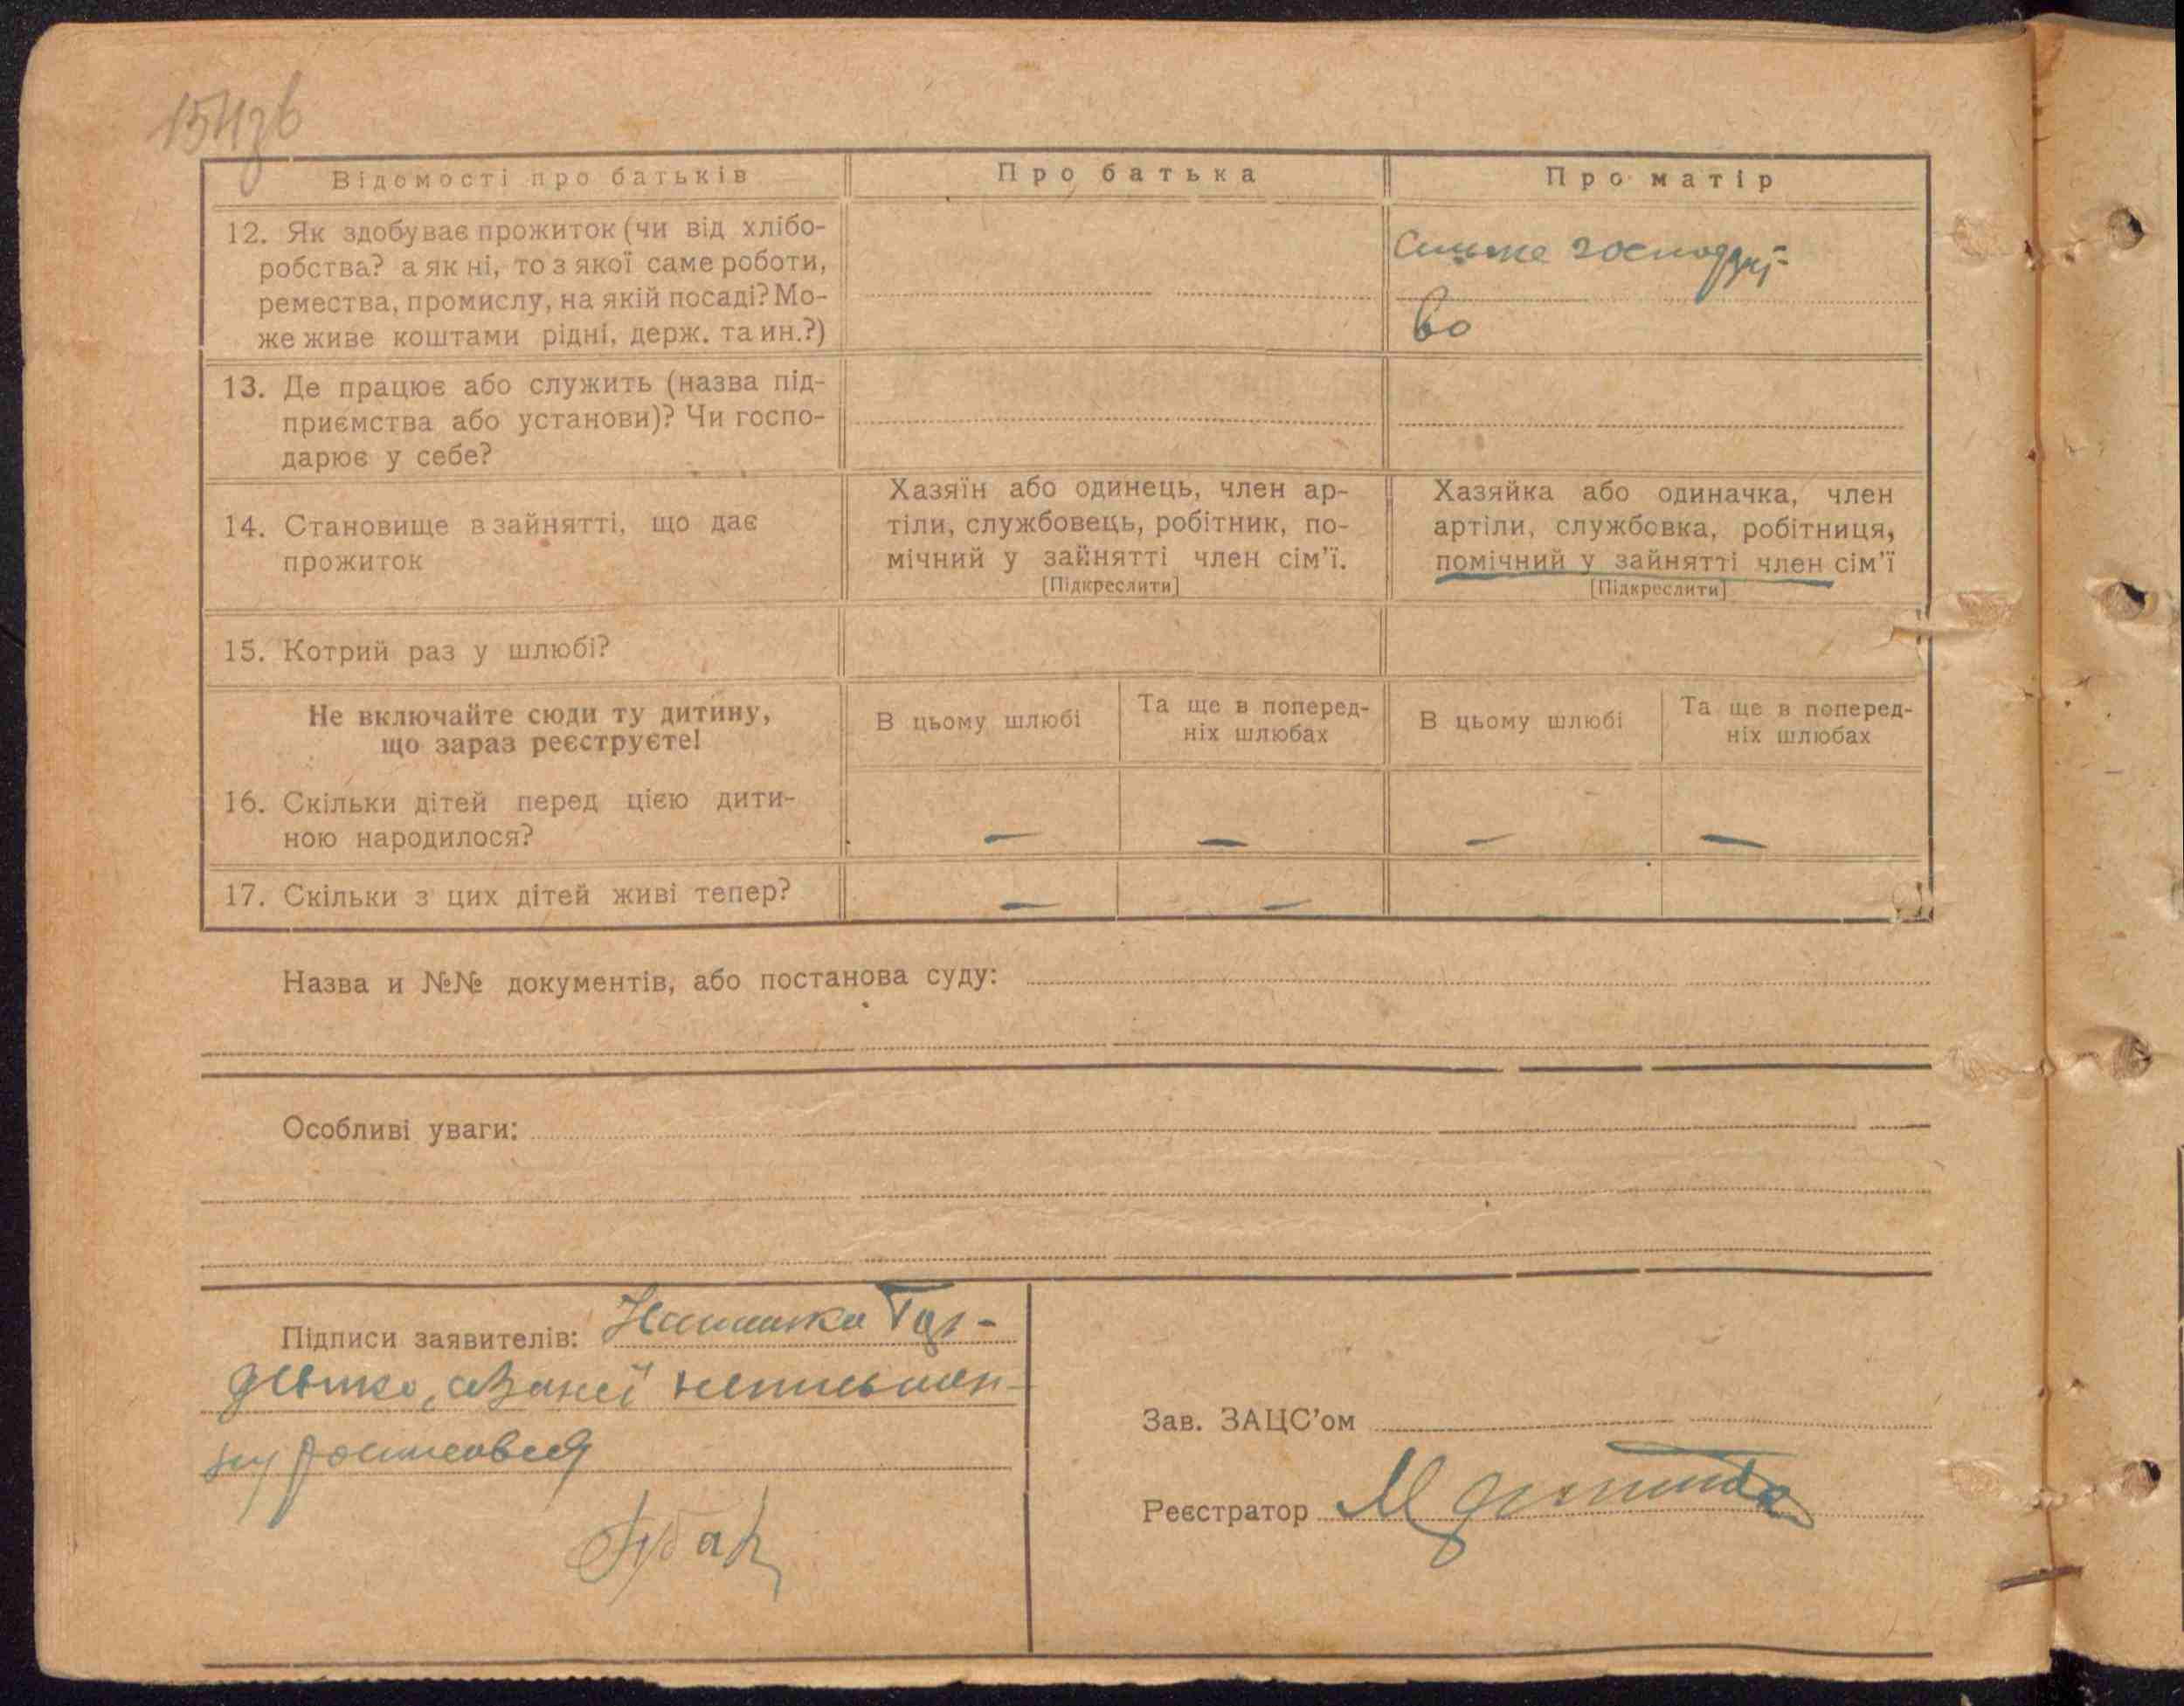 154зв
Відомості про батьків
Про батька
Про матір
12. Як здобуває прожиток (чи від хлібо-
робства? а як ні, то з якої саме роботи,
ремества, промислу, на якій посаді? Мо-
же живе коштами рідні, держ. та ин.?)
во
13. Де працює або служить (назва під-
приємства або установи)? Чи госпо-
дарює у себе?
14. Становище в зайнятті, що дає
прожиток
Хазяїн або одинець, член ар-
тіли, службовець, робітник, по-
мічний у зайнятті член сім'ї.
[Підкреслити]
Хазяйка або одиначка, член
артіли, службовка, робітниця,
помічний у зайнятті член сім'ї
[Підкреслити]
15. Котрий раз у шлюбі?
Не включайте сюди ту дитину,
що зараз реєструєте!
В цьому шлюбі
Та ще в поперед-
ніх шлюбах
В цьому шлюбі
Та ще в поперед-
ніх шлюбах
16. Скільки дітей перед цією дити-
ною народилося?
— — — —
17. Скільки з цих дітей живі тепер?
— —
Назва и №№ документів, або постанова суду:
Особливі уваги:
Підписи заявителів:
Зав. ЗАЦС'ом
Реєстратор